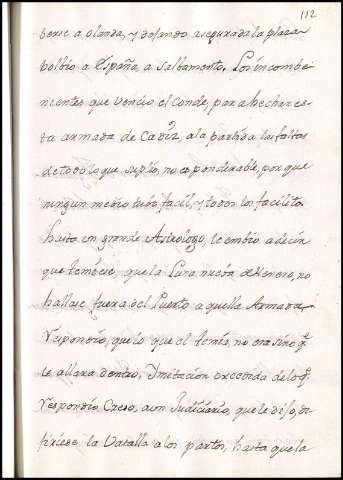 112
berse a olanda, y dejando asegurada la plaza
bolbio a España a salbamento. Los incombe-
nientes que vencio el Conde, para hechar es-
ta armada de Cadiz, a la partida las faltas
de todo lo que suplio, no es ponderable, porque
ningun medio tubo facil, y todos los facilito
hasta un grande Astrologo, le embio a decir
que temiese, que la Luna nueva de Henero, no
hallase fuera del Puerto a quella Armada
Respondio, que lo que el temia, no era sino q.e
le allara dentro, Imitacion excedida de lo q.e
Respondio Craso, a un Judiciario, que le dijo, di-
firiese la Batalla a los partos, hasta que la